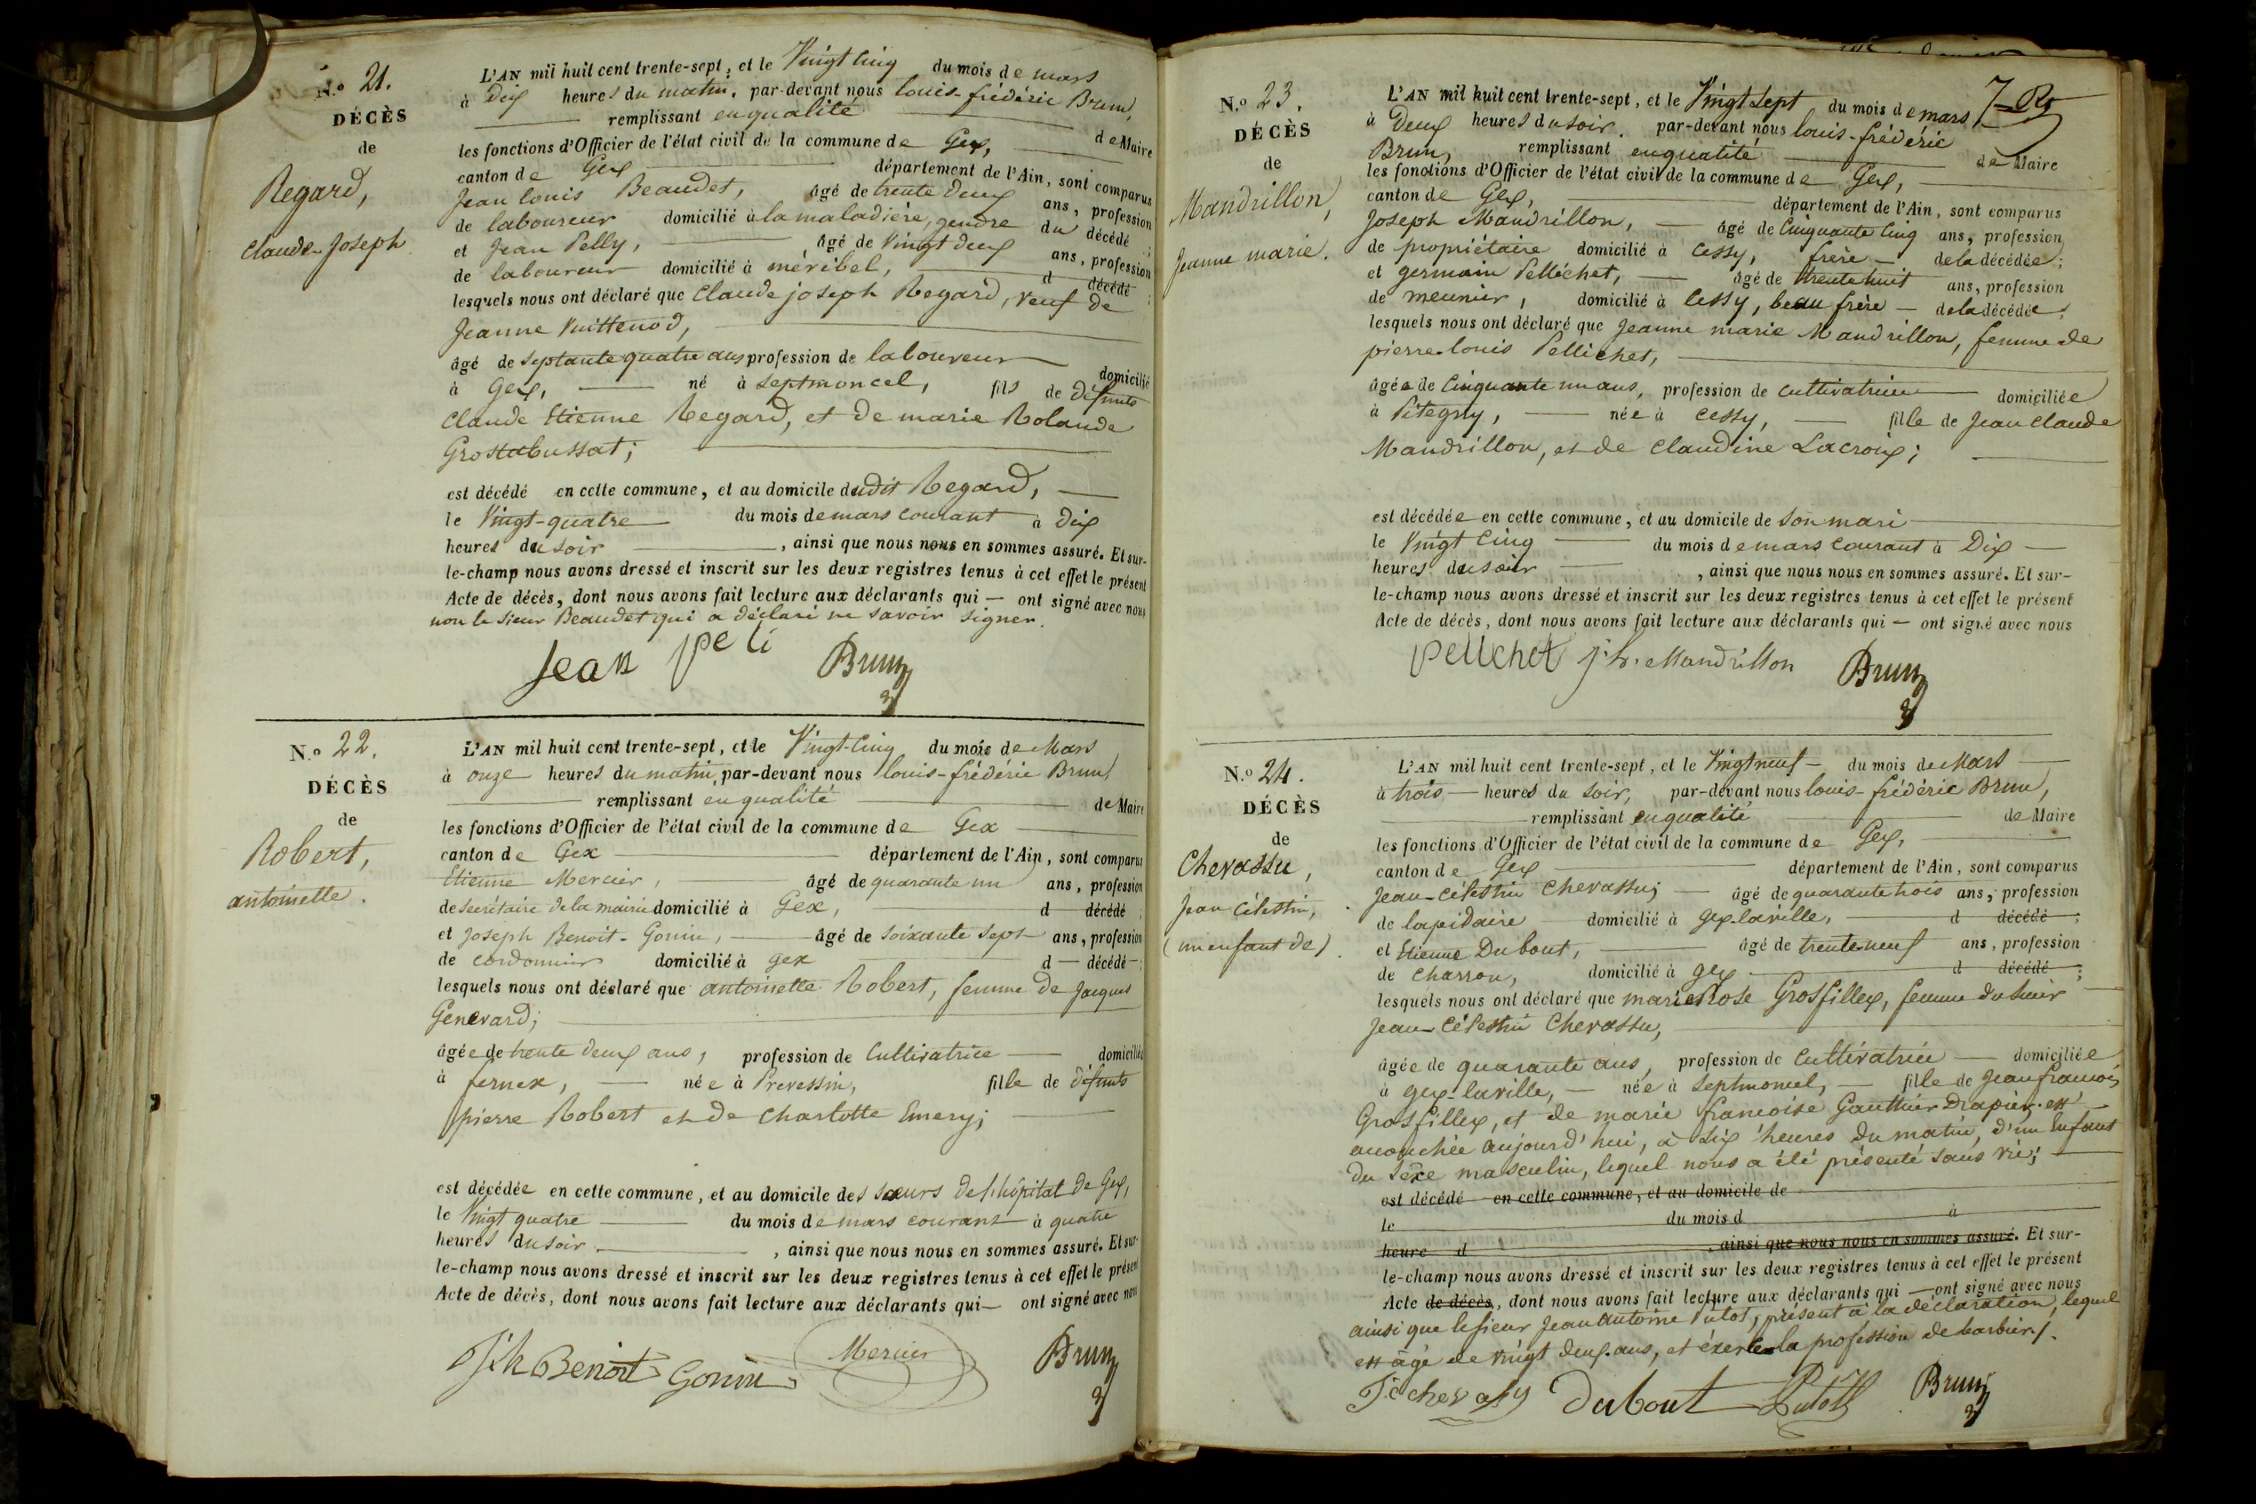 N.o 21.
DÉCÈS
de
Regard,
Claude-Joseph
L'AN mil huit cent trente-sept, et le Vingt Cinq du mois de mars
à Dix heures du matin, par-devant nous louis-frédéric Brun,
remplissant en qualité de Maire
les fonctions d'Officier de l'état civil de la commune de Gex,
canton de Gex département de l'Ain, sont comparus
Jean louis Beaudet, âgé de trente deux ans, profession
de laboureur domicilié à la maladière, gendre du décédé ;
et Jean Pelly, âgé de Vingt deux ans, profession
de laboureur domicilié à méribel, d décédé ;
lesquels nous ont déclaré que Claude joseph Regard, veuf de
Jeanne Vuittenod,
âgé de septante quatre ans profession de laboureur domicilié
à Gex, né à septmoncel, fils de défunts
Claude Etienne Regard, et de marie Rolande
Grostabussat;
est décédé en cette commune, et au domicile dudit Regard,
le Vingt-quatre du mois de mars courant à Dix
heures du soir , ainsi que nous nous en sommes assuré. Et sur-
le-champ nous avons dressé et inscrit sur les deux registres tenus à cet effet le présent
Acte de décès, dont nous avons fait lecture aux déclarants qui — ont signé avec nous
non le sieur Beaudet qui a déclaré ne savoir signer.
Jean peli Brun
N.o 22.
DÉCÈS
de
Robert,
antoinette.
L'AN mil huit cent trente-sept, et le Vingt-Cinq du mois de Mars
à onze heures du matin, par-devant nous louis-frédéric Brun,
remplissant en qualité de Maire
les fonctions d'Officier de l'état civil de la commune de Gex
canton de Gex département de l'Ain, sont comparus
Etienne Mercier, âgé de quarante un ans, profession
de secrétaire de la mairie domicilié à Gex, d décédé ;
et Joseph Benoit-Gonin, âgé de soixante sept ans, profession
de cordonnier domicilié à gex d — décédé — ;
lesquels nous ont déclaré que antoinette Robert, femme de Jacques
Genevard;
âgée de trente deux ans, profession de Cultivatrice domiciliée
à fernex, née à Prevessin, fille de défunts
pierre Robert et de Charlotte Emery;
est décédée en cette commune, et au domicile des sœurs de l'hôpital de Gex,
le Vingt quatre du mois de mars courant à quatre
heures du soir. , ainsi que nous nous en sommes assuré. Et sur-
le-champ nous avons dressé et inscrit sur les deux registres tenus à cet effet le présent
Acte de décès, dont nous avons fait lecture aux déclarants qui — ont signé avec nous
Jph Benoit Gonin Mercier Brun
N.o 23.
DÉCÈS
de
Mandrillon,
Jeanne marie.
L'AN mil huit cent trente-sept, et le Vingt Sept du mois de mars
à Deux heures du soir. par-devant nous louis-frédéric
Brun, remplissant en qualité de Maire
les fonctions d'Officier de l'état civil de la commune de Gex,
canton de Gex, département de l'Ain, sont comparus
Joseph Mandrillon, âgé de Cinquante Cinq ans, profession
de propriétaire domicilié à Cessy, frère — de la décédée ;
et germain Pellichet, âgé de trente huit ans, profession
de meunier, domicilié à Cessy, beau frère — de la décédée ;
lesquels nous ont déclaré que Jeanne marie Mandrillon, femme de
pierre-louis Pellichet,
âgée de Cinquante un ans, profession de cultivatrice domiciliée
à Pitegny, née à Cessy, fille de Jean Claude
Mandrillon, et de Claudine Lacroix;
est décédée en cette commune, et au domicile de son mari
le Vingt Cinq du mois de mars courant à Dix
heures du soir , ainsi que nous nous en sommes assuré. Et sur-
le-champ nous avons dressé et inscrit sur les deux registres tenus à cet effet le présent
Acte de décès, dont nous avons fait lecture aux déclarants qui — ont signé avec nous
pellichet jh. Mandrillon Brun
N.o 24.
DÉCÈS
de
Chevassu,
Jean Célestin,
(un enfant de).
L'AN mil huit cent trente-sept, et le Vingt neuf du mois de Mars
à trois heures du soir, par-devant nous louis-frédéric Brun,
remplissant en qualité de Maire
les fonctions d'Officier de l'état civil de la commune de Gex,
canton de Gex département de l'Ain, sont comparus
Jean-Célestin Chevassu, âgé de quarante trois ans, profession
de lapidaire domicilié à gex-laville, d décédé ;
et Etienne Dubout, âgé de trente-neuf ans, profession
de charron, domicilié à gex d décédé ;
lesquels nous ont déclaré que marie Rose Grosfillex, femme du sieur
Jean-Célestin Chevassu,
âgée de quarante ans, profession de Cultivatrice domiciliée
à gex-laville, née à septmoncel, fille de Jean françois
Grosfillex, et de marie francoise Gauthier Drapier est
accouchée aujourd'hui, à six heures du matin, d'un Enfant
du sexe masculin, lequel nous a été présenté sans vie;
est décédé en cette commune, et au domicile de
le du mois d à
heure d , ainsi que nous nous en sommes assuré. Et sur-
le-champ nous avons dressé et inscrit sur les deux registres tenus à cet effet le présent
Acte de décès, dont nous avons fait lecture aux déclarants qui — ont signé avec nous
ainsi que le sieur Jean antoine Putot, présent à la déclaration, lequel
est âgé de vingt deux ans, et exerce la profession de barbier.
Jc chevassu Dubout Putot Brun